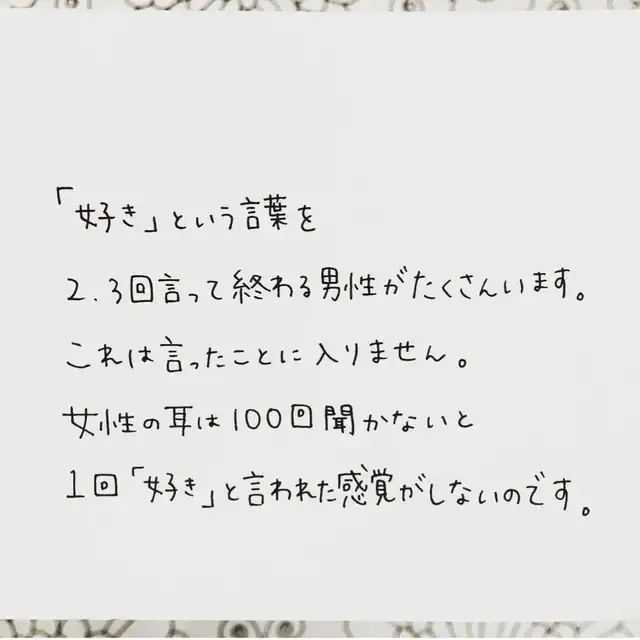 「好き」という言葉を
2.3回言って終わる男性がたくさんいます。
これは言ったことに入りません。
女性の耳は100回聞かないと
1回「好き」と言われた感覚がしないのです。